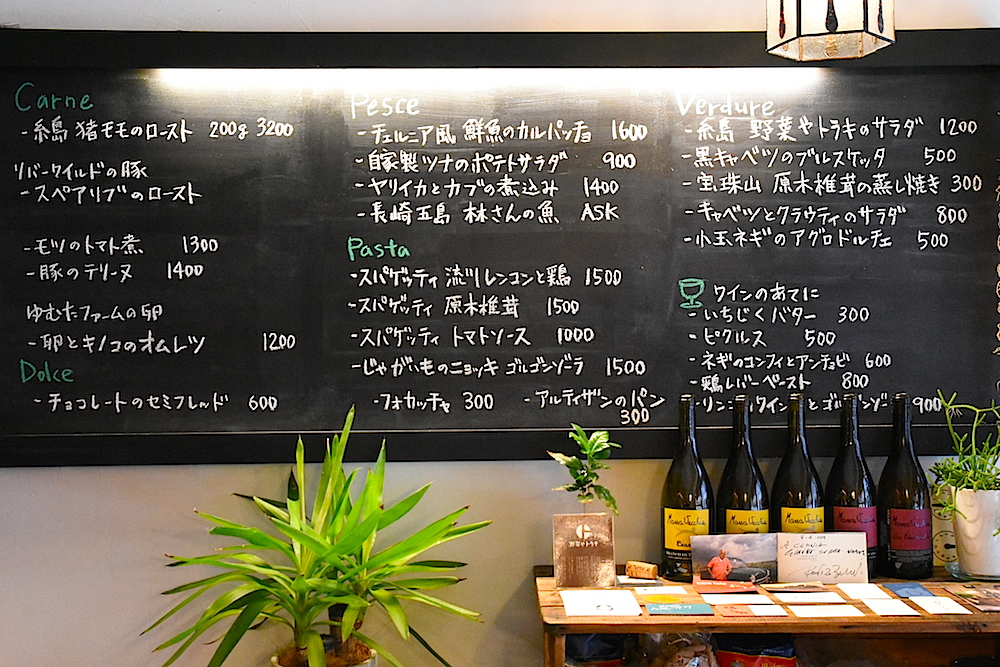 Carne
-糸島 猪モモのロースト 200g 3200
リバーワイルドの豚
-スペアリブのロースト
-モツのトマト煮 1300
-豚のテリーヌ 1400
ゆむたファームの卵
-卵とキノコのオムレツ 1200
Dolce
-チョコレートのセミフレッド 600
Pesce
-チェルニア風 鮮魚のカルパッチョ 1600
-自家製ツナのポテトサラダ 900
-ヤリイカとカブの煮込み 1400
-長崎五島 林さんの魚 ASK
Pasta
-スパゲッティ 流川レンコンと鶏 1500
-スパゲッティ 原木椎茸 1500
-スパゲッティ トマトソース 1000
-じゃがいものニョッキ ゴルゴンゾーラ 1500
-フォカッチャ 300
-アルティザンのパン 300
Verdure
-糸島 野菜やトラキのサラダ 1200
-黒キャベツのブルスケッタ 500
-宝珠山 原木椎茸の蒸し焼き 300
-キャベツとクラウティのサラダ 800
-小玉ネギのアグロドルチェ 500
ワインのあてに
-いちじくバター 300
-ピクルス 500
-ネギのコンフィとアンチョビ 600
-鶏レバーペースト 800
-リンゴ ワイン とゴルゴンゾ 900
野菜やトラキ